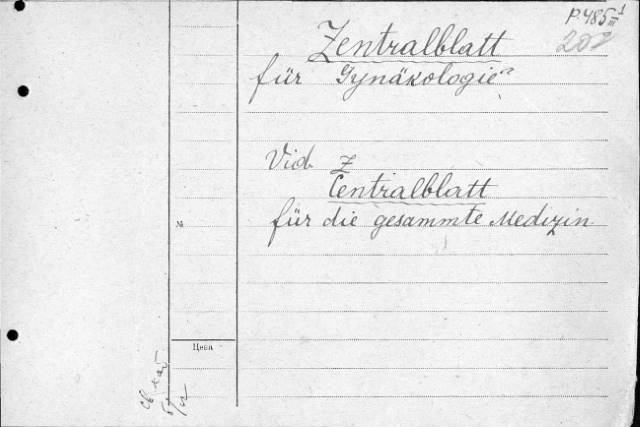 P.485 III 1
202
Zentralblatt
für Gynäkologie"
Vid. Z
Centralblatt
für die gesammte Medizin
№
Цена